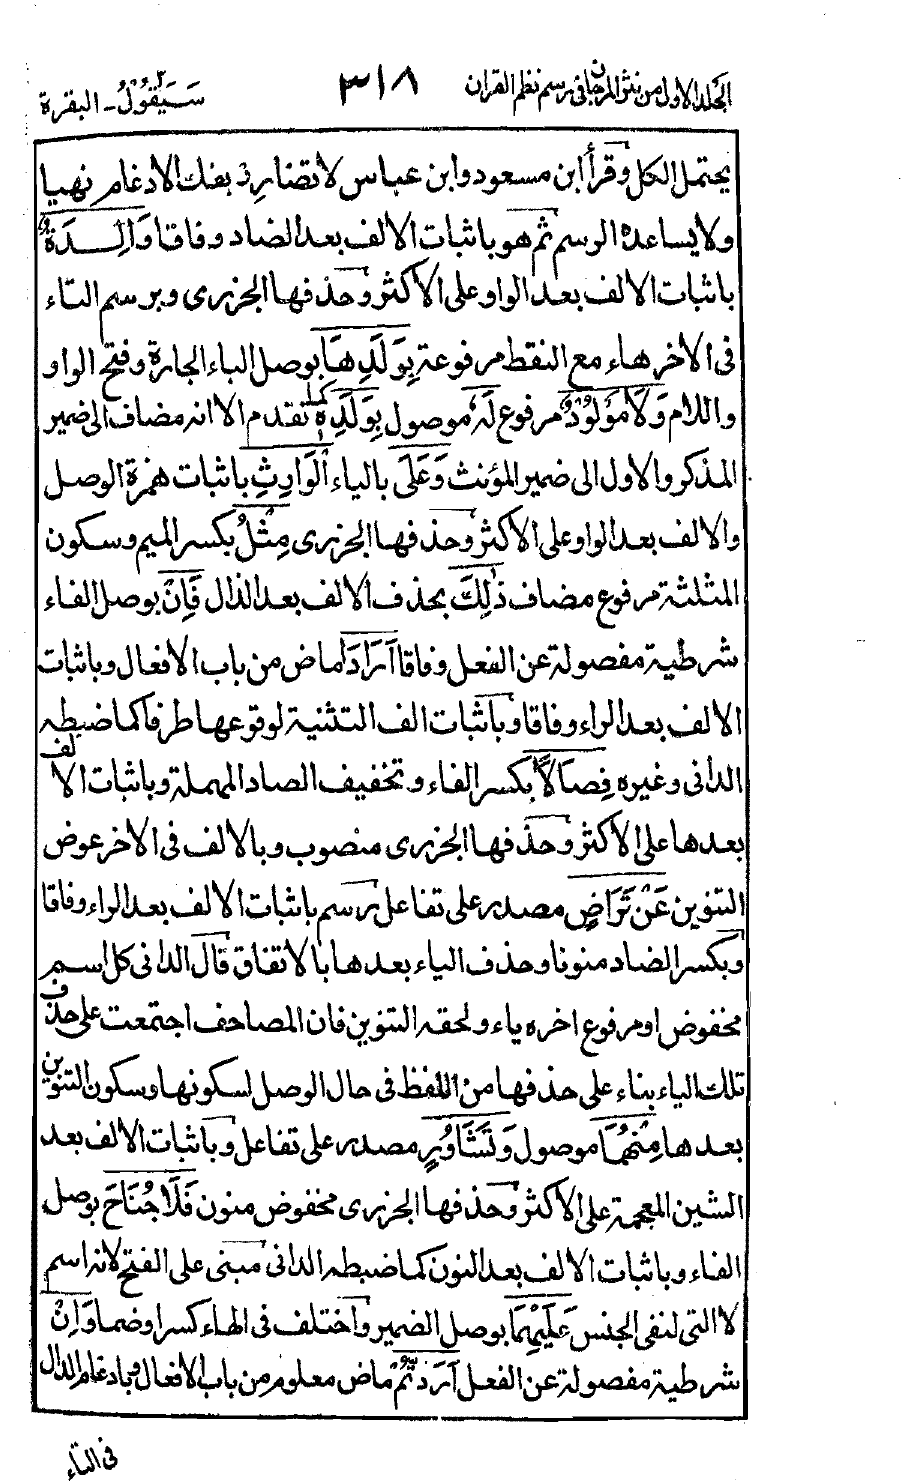 الجلد الاول من نثر المرجان في رسم نظم القران ٣١٨ سَيَقُوْلُ ٢ - البقرة
يحتمل الكل وقرأ ابن مسعود وابن عباس لاتضارِرْ بفك الادغام نهيا
ولا يساعده الرسم ثم هو باثبات الالف بعد الضاد وفاقا وَالِدَةٌ
باثبات الالف بعد الواو على الأكثر وحذفها الجزرى وبرسم التاء
فى الاخر هاء مع النقط مرفوعة بِوَلَدِهَا بوصل الباء الجارة وفتح الواو
واللام وَلَا مَوْلُوْدٌ مرفوع لَهٗ موصول بِوَلَدِهٖ كما تقدم الا انه مضاف الى ضمير
المذكر والاول الى ضمير المؤنث وَعَلَى بالياء الْوَارِثِ باثبات همزة الوصل
والالف بعد الواو على الأكثر وحذفها الجزرى مِثْلُ بكسر الميم وسكون
المثلثة مرفوع مضاف ذٰلِكَ بحذف الالف بعد الذال فَاِنْ بوصل الفاء
شرطية مفصولة عن الفعل وفاقا اَرَادَا ماض من باب الافعال وباثبات
الالف بعد الراء وفاقا وباثبات الف التثنية لوقوعها طرفا كما ضبطه
الدانى وغيره فِصَالًا بكسر الفاء وتخفيف الصاد المهملة وباثبات الالف
بعدها على الأكثر وحذفها الجزرى منصوب وبالالف فى الاخر عوض
التنوين عَنْ تَرَاضٍ مصدر على تفاعل رسم باثبات الالف بعد الراء وفاقا
وبكسر الضاد منونا وحذف الياء بعدها بالاتفاق قال الدانى كل اسم
مخفوض او مرفوع اخره ياء ولحقه التنوين فان المصاحف اجتمعت على حذف
تلك الياء بناء على حذفها من اللفظ فى حال الوصل لسكونها وسكون التنوين
بعدها مِنْهُمَا موصول وَتَشَاوُرٍ مصدر على تفاعل وباثبات الالف بعد
الشين المعجمة على الأكثر وحذفها الجزرى مخفوض منون فَلَا جُنَاحَ بوصل
الفاء وباثبات الالف بعد النون كما ضبطه الدانى مبنى على الفتح لانه اسم
لا التى لنفى الجنس عَلَيْهِمَا بوصل الضمير واختلف فى الهاء كسرا وضما وَاِنْ
شرطية مفصولة عن الفعل اَرَدْتُّمْ ماض معلوم من باب الافعال وبادغام الدال
فى التاء